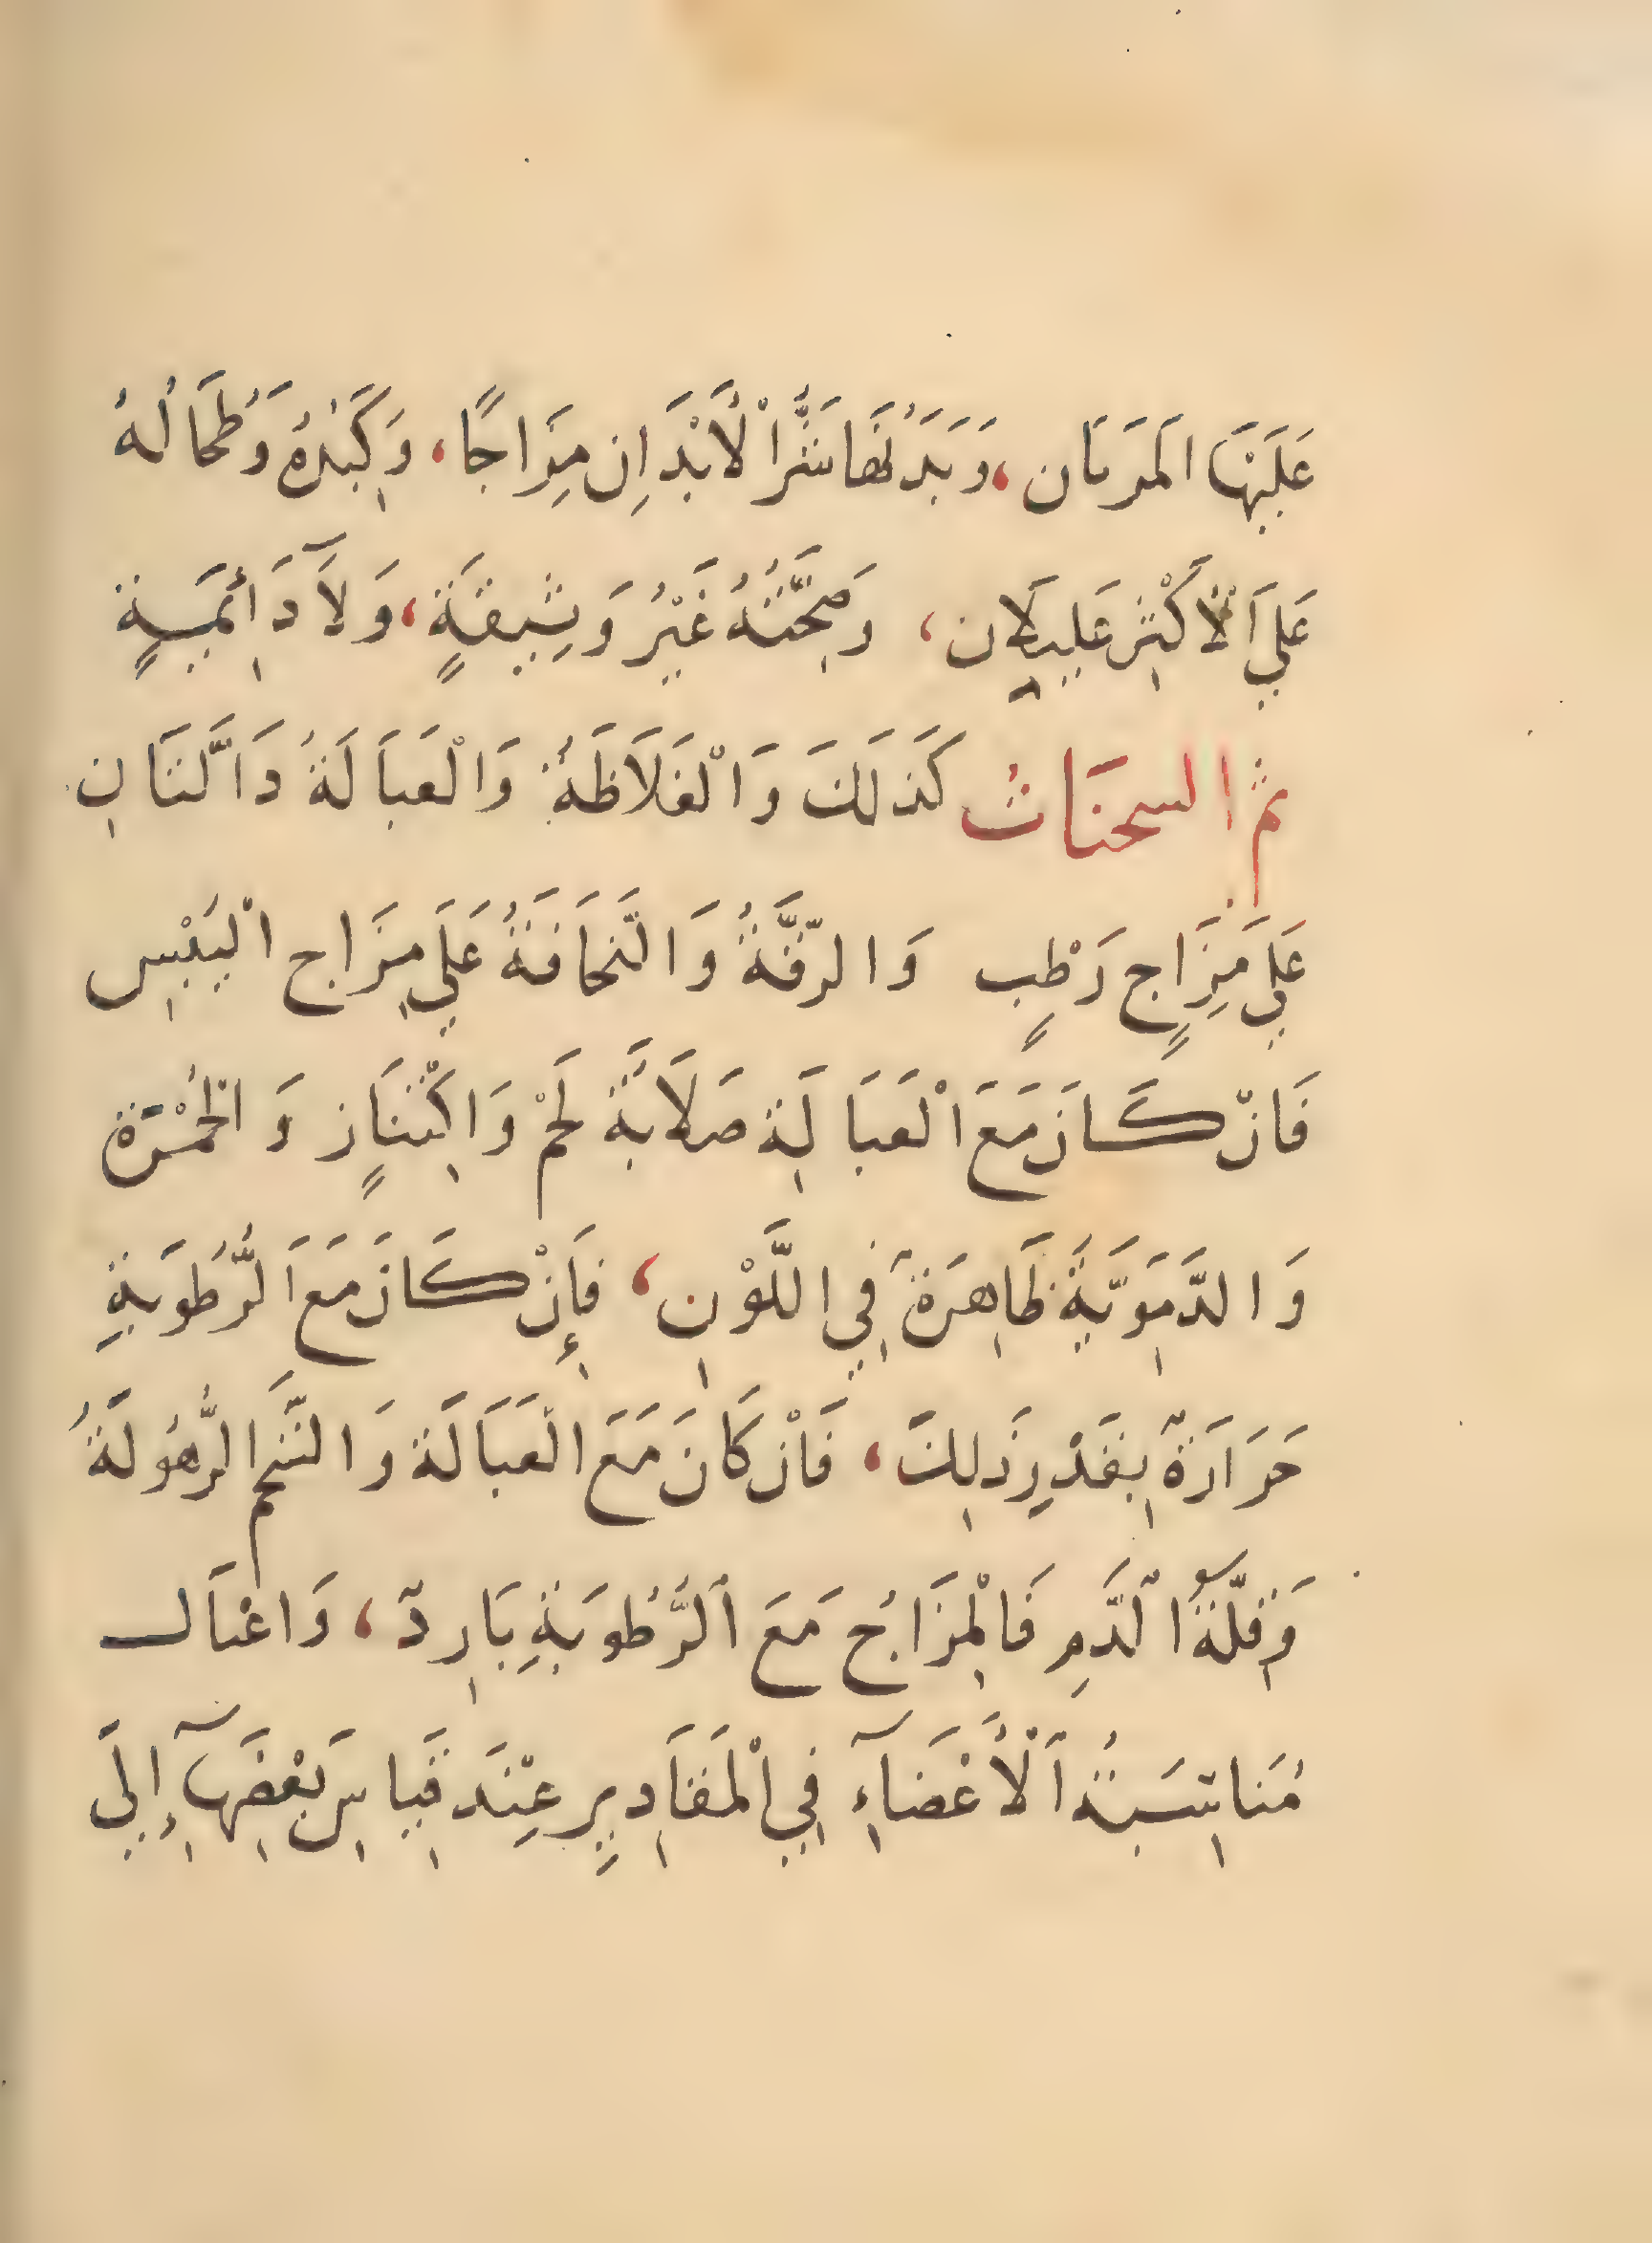 عَلَيْهَا الْمَرَتَان، وَبَدَنُهَا شَرُّ الْأَبْدَانِ مِزَاجًا، وَكَبِدُهُ وَطُحَالُهُ
عَلَي اَلْأَكْثِر عَلِيلَان، وَصِحَّتُهُ غَيْرُ وَثِيقَةٍ، وَلَآ دَائِمَيةٍ
ثم السحنَاتُ كَذَلَكَ وَالْغَلَاظَةُ وَالْعَبَالَةُ دَالَّتَانِ
عَلي مَزَاجٍ رَطْبٍ وَالرّقَّةُ وَالنَّحَافَةُ عَلَي مِزَاج الْيَبْسِ
فَانْ كَانَ مَعَ الْعَبَالَةِ صَلَابَةَ لَحْمْ وَاكْتِنَازٍ وَالْحُمْرَةَ
وَالدَّمِوَيَّةَ ظَاهِرَةً فِي اللَّوْنِ، فَإِنْ كَانَ مَعَ الرُّطُوَبةِ
حَرَارَةً بِقَدْرِ ذَلِكَ، فَانْ كَانَ مَعَ الْعَبَالَة وَالشَّحَم الرُّهُولَةُ
وَقِلَّةُ الدَّمِ فَالْمِزَاجُ مَعَ الرُّطُوَبةِ بَارِدٌ، وَاعْتَال
مُنَاسِبَةُ اَلْأَعْضَآءِ فِي الْمَقَادِيرِ عِنْدَ قِيَاسِ بَعْضِهَآ إِلَي